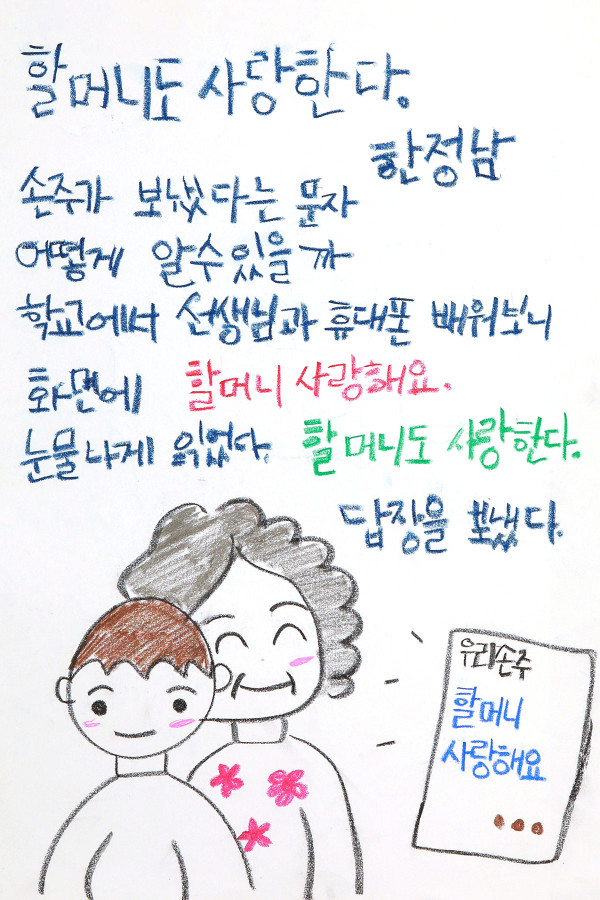 할머니도 사랑한다.
한정남
손주가 보냈다는 문자
어떻게 알수있을까
학교에서 선생님과 휴대폰 배워보니
화면에 할머니 사랑해요.
눈물나게 읽었다. 할머니도 사랑한다.
답장을 보냈다.
우리손주
할머니
사랑해요